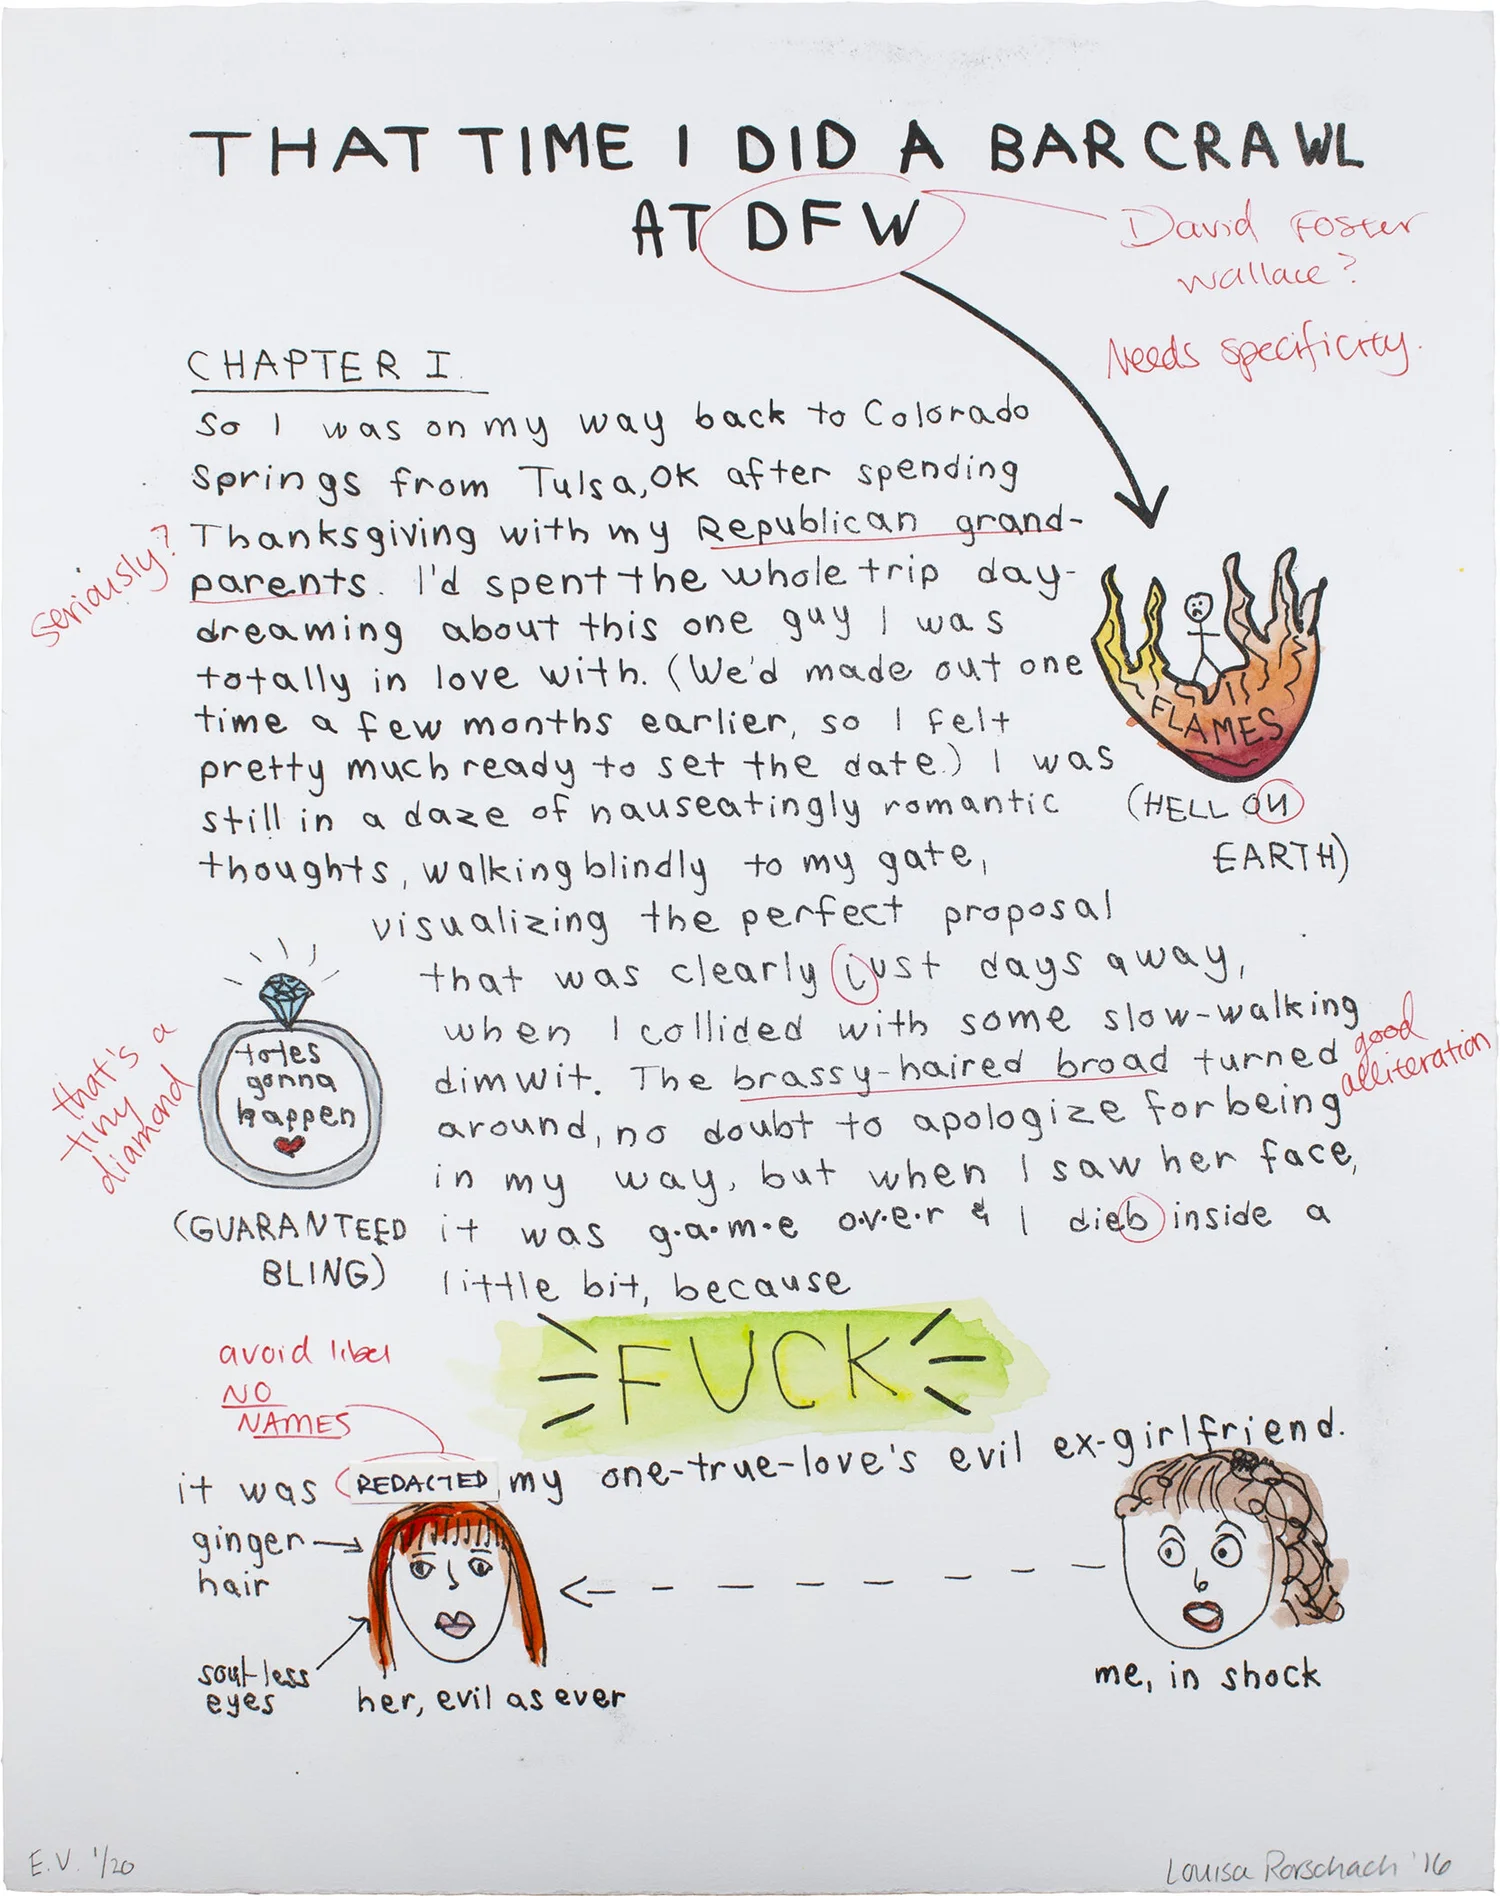 THAT TIME I DID A BAR CRAWL
AT DFW
David Foster
Wallace?
Needs specificity.
CHAPTER I
So I was on my way back to Colorado
Springs from Tulsa, OK after spending
Thanksgiving with my Republican grand-
parents. I'd spent the whole trip day-
seriously?
dreaming about this one guy I was
totally in love with. (We'd made out one
time a few months earlier, so I felt
pretty much ready to set the date.) I was
still in a daze of nauseatingly romantic
thoughts, walking blindly to my gate,
FLAMES
(HELL ON
EARTH)
visualizing the perfect proposal
that was clearly just days away,
when I collided with some slow-walking
dimwit. The brassy-haired broad turned
around, no doubt to apologize for being
in my way, but when I saw her face,
it was g.a.m.e o.v.e.r & I dieb inside a
little bit, because
good
alliteration
totes
gonna
happen
that's a
tiny
diamond
(GUARANTEED
BLING)
FUCK
avoid libel
NO
NAMES
it was REDACTED, my one-true-love's evil ex-girlfriend.
ginger
hair
soul-less
eyes
her, evil as ever
me, in shock
E.V. 1/20
Louisa Rorschach '16